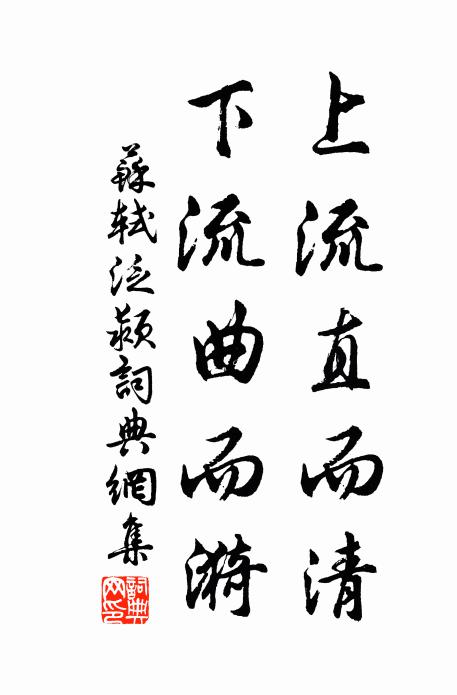 上流直而清
下流曲而漪
蘇軾泛潁詞典網集
詞典網印